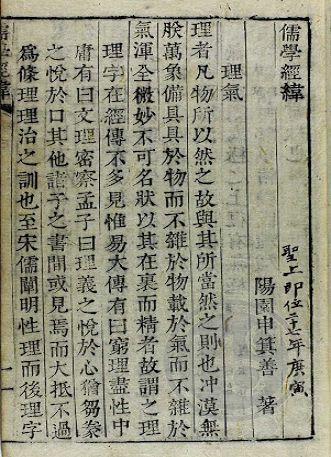 儒學經緯
聖上卽位三十一年庚寅
陽園申箕善 著
理氣
理者凡物所以然之故與其所當然之則也冲漠無
朕萬象備具具於物而不雜於物載於氣而不雜於
氣渾全微妙不可名狀以其在裏而精者故謂之理
理字在經傳不多見惟易大傳有曰窮理盡性中
庸有曰文理密察孟子曰理義之悅於心猶芻豢
之悅於口其他諸子之書間或見焉而大抵不過
爲條理理治之訓也至宋儒闡明性理而後理字
儒學經緯
一